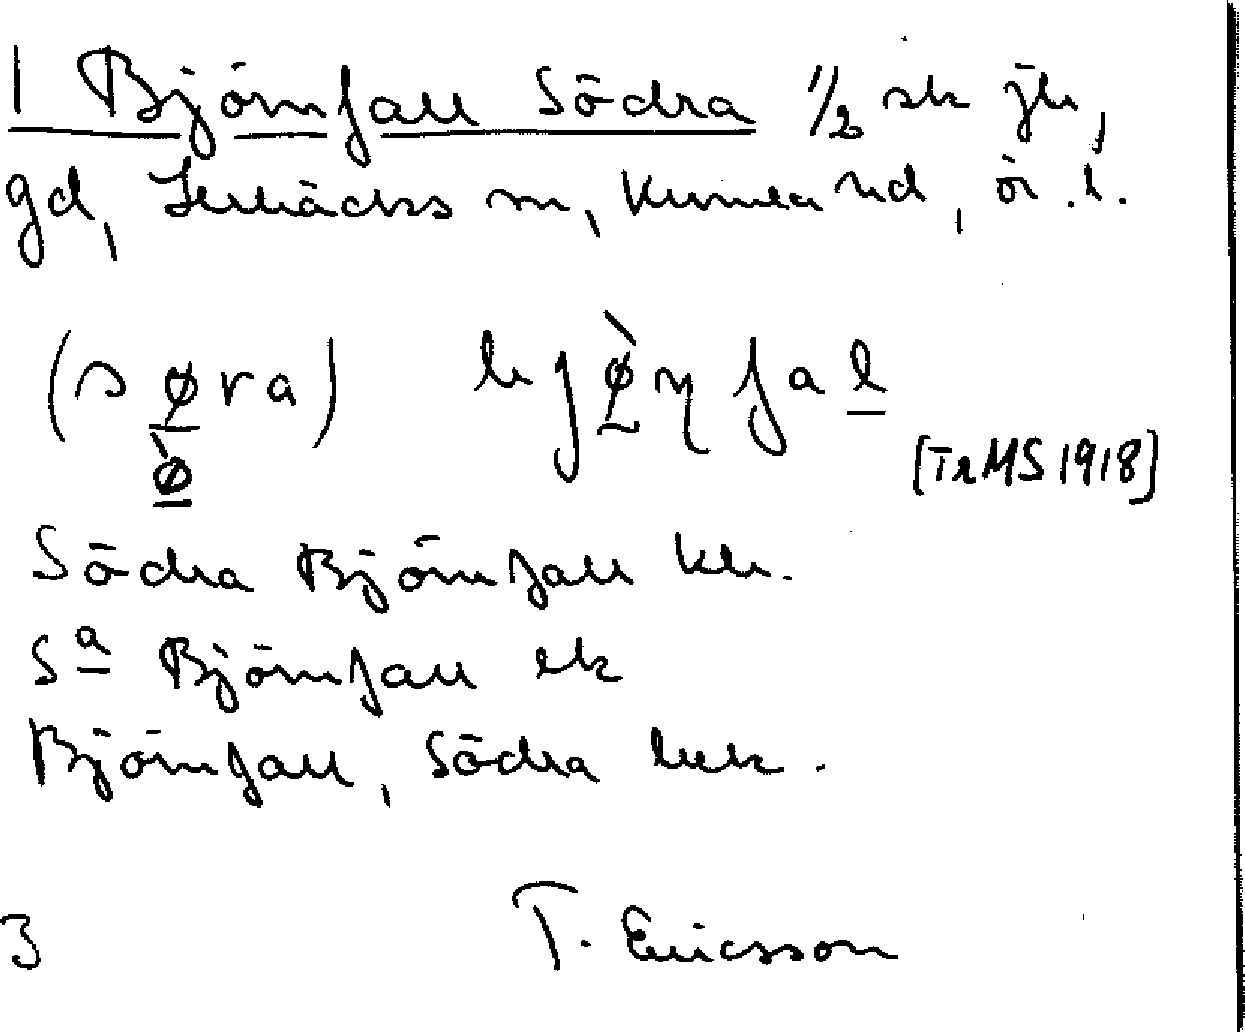 1 Björnfall Södra 1/2 sk jb,
gd, Lerbäcks sn, Kumla hd, ör. l.
(søra) bjø̀ṇfal
ø̀
[TrMS 1918]
Södra Björnfall kb.
Sa Björnfall ek
Björnfall, Södra hek.
3 T. Ericsson